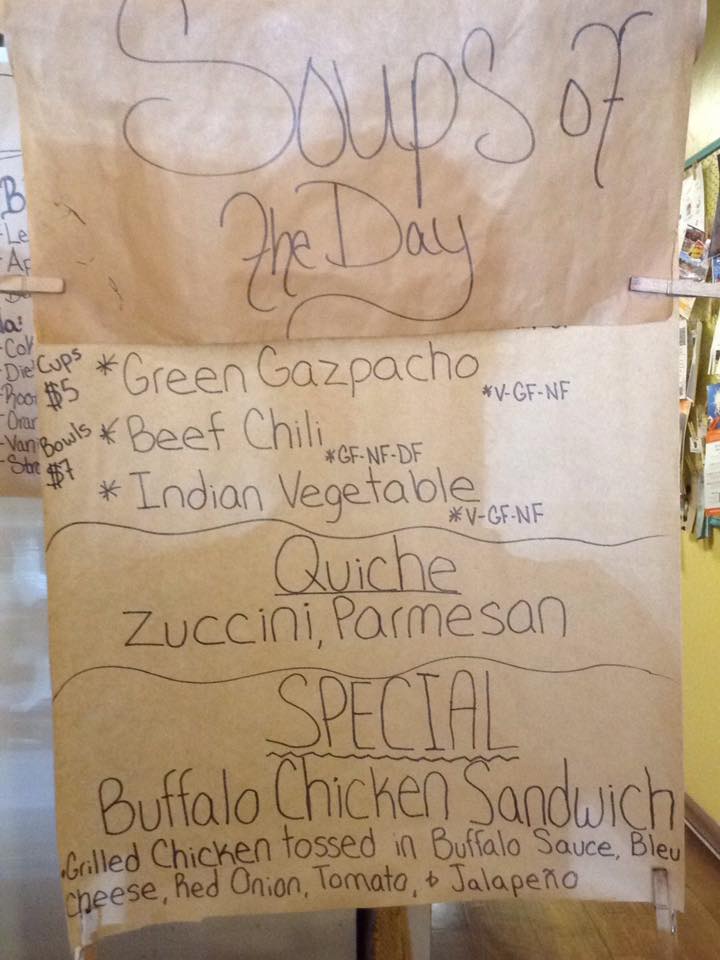 Soups of
the Day
Cups
$5
*Green Gazpacho
*V-GF-NF
Bowls
$7
*Beef Chili
*GF-NF-DF
* Indian Vegetable
*V-GF-NF
Quiche
Zuccini, Parmesan
SPECIAL
Buffalo Chicken Sandwich
•Grilled Chicken tossed in Buffalo Sauce, Bleu
cheese, Red Onion, Tomato, & Jalapeño